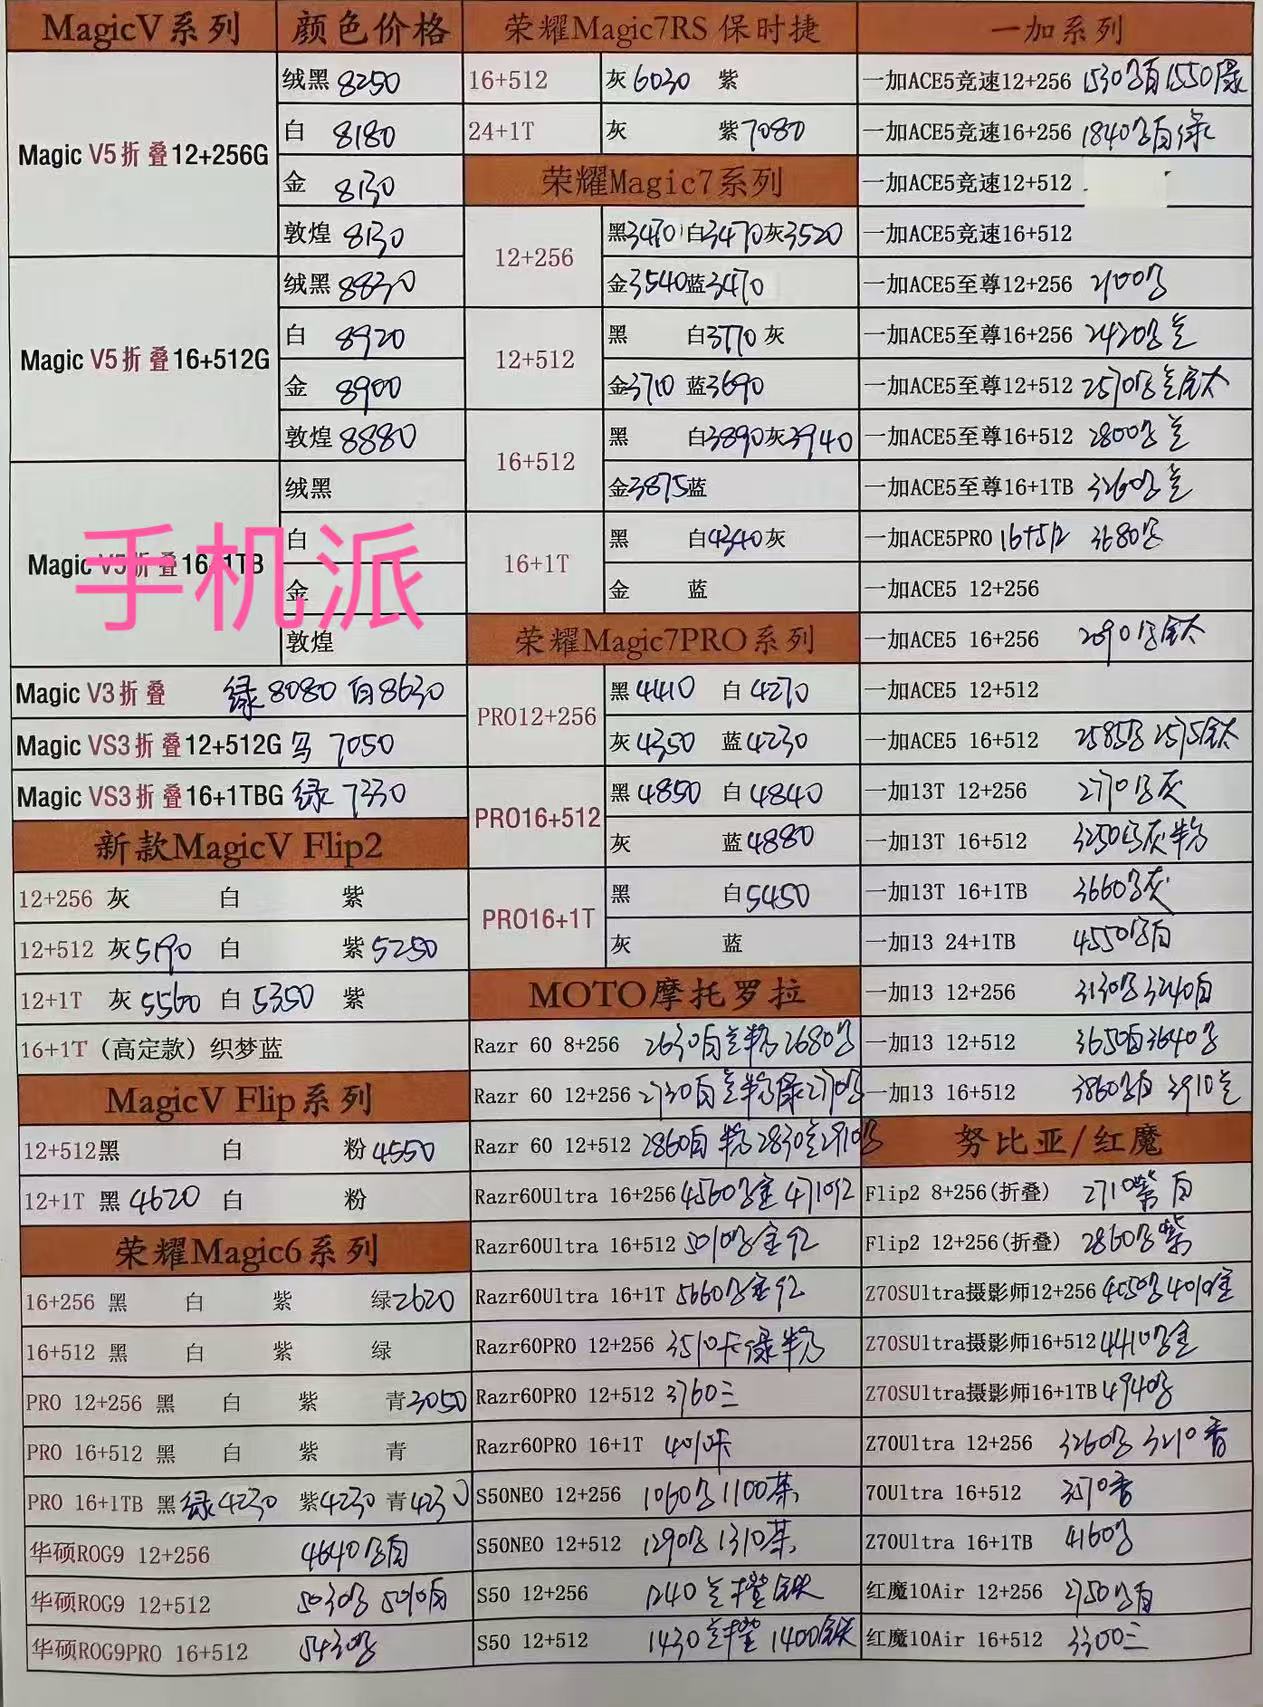 MagicV系列 颜色价格
Magic V5折叠12+256G
绒黑 8250
白 8180
金 8130
敦煌 8130
Magic V5折叠16+512G
绒黑 8830
白 8920
金 8900
敦煌 8880
Magic V5折叠16+1TB
绒黑
白
金
敦煌
手机派
Magic V3折叠 绿8080 白8630
Magic VS3折叠12+512G 7050
Magic VS3折叠16+1TBG 绿 7330
新款MagicV Flip2
12+256 灰 白 紫
12+512 灰5190 白 紫5250
12+1T 灰5560 白5350 紫
16+1T（高定款）织梦蓝
MagicV Flip系列
12+512黑 白 粉4550
12+1T 黑4620 白 粉
荣耀Magic6系列
16+256 黑 白 紫 绿2620
16+512 黑 白 紫 绿
PRO 12+256 黑 白 紫 青3050
PRO 16+512 黑 白 紫 青
PRO 16+1TB 黑 绿4230 紫4230 青4230
华硕ROG9 12+256 4640 白
华硕ROG9 12+512 5030 5090白
华硕ROG9PRO 16+512 5430
荣耀Magic7RS 保时捷
16+512 灰6030 紫
24+1T 灰 紫7080
荣耀Magic7系列
12+256
黑3470 白3470 灰3520
金3540 蓝3470
12+512
黑 白3770 灰
金3710 蓝3690
16+512
黑 白3890 灰3940
金3875 蓝
16+1T
黑 白4340 灰
金 蓝
荣耀Magic7PRO系列
PRO12+256
黑4410 白4270
灰4350 蓝4230
PRO16+512
黑4850 白4840
灰 蓝4880
PRO16+1T
黑 白5450
灰 蓝
MOTO摩托罗拉
Razr 60 8+256 2630白兰粉 2680
Razr 60 12+256 2730白兰粉绿2770
Razr 60 12+512 2860白粉 2830兰2910
Razr60Ultra 16+256 4560 金 4710红
Razr60Ultra 16+512 金红
Razr60Ultra 16+1T 5660 金红
Razr60PRO 12+256 3510卡绿粉
Razr60PRO 12+512 3760三
Razr60PRO 16+1T
S50NEO 12+256 1060 1100茶
S50NEO 12+512 1290 1310茶
S50 12+256 1240兰橙
S50 12+512 1430兰橙 1400
一加系列
一加ACE5竞速12+256 1530 白 1550绿
一加ACE5竞速16+256 1840 白绿
一加ACE5竞速12+512
一加ACE5竞速16+512
一加ACE5至尊12+256 2100
一加ACE5至尊16+256 2420 兰
一加ACE5至尊12+512 2570 兰钛
一加ACE5至尊16+512 2800 兰
一加ACE5至尊16+1TB 3260 兰
一加ACE5PRO 16+512 3680
一加ACE5 12+256
一加ACE5 16+256 2090 钛
一加ACE5 12+512
一加ACE5 16+512 2585 2575钛
一加13T 12+256 2770 灰
一加13T 16+512 3250 灰粉
一加13T 16+1TB 3660 灰
一加13 24+1TB 4550 白
一加13 12+256 3130 3240白
一加13 12+512 3650白3640
一加13 16+512 3860 白 3910兰
努比亚/红魔
Flip2 8+256(折叠) 2710紫白
Flip2 12+256(折叠) 2860 紫
Z70SUltra摄影师12+256 4050 4010金
Z70SUltra摄影师16+512 4410 金
Z70SUltra摄影师16+1TB 4940
Z70Ultra 12+256 3260 3210香
70Ultra 16+512 香
Z70Ultra 16+1TB 4160
红魔10Air 12+256 2750 白
红魔10Air 16+512 3300三